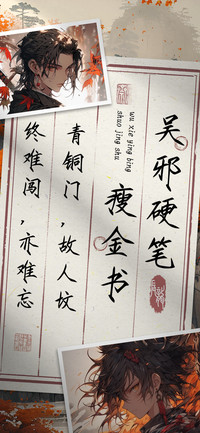 吴邪硬笔
瘦金书
wu xie ying bing
shuo jing shu
青铜门，故人坟
终难闯，亦难忘